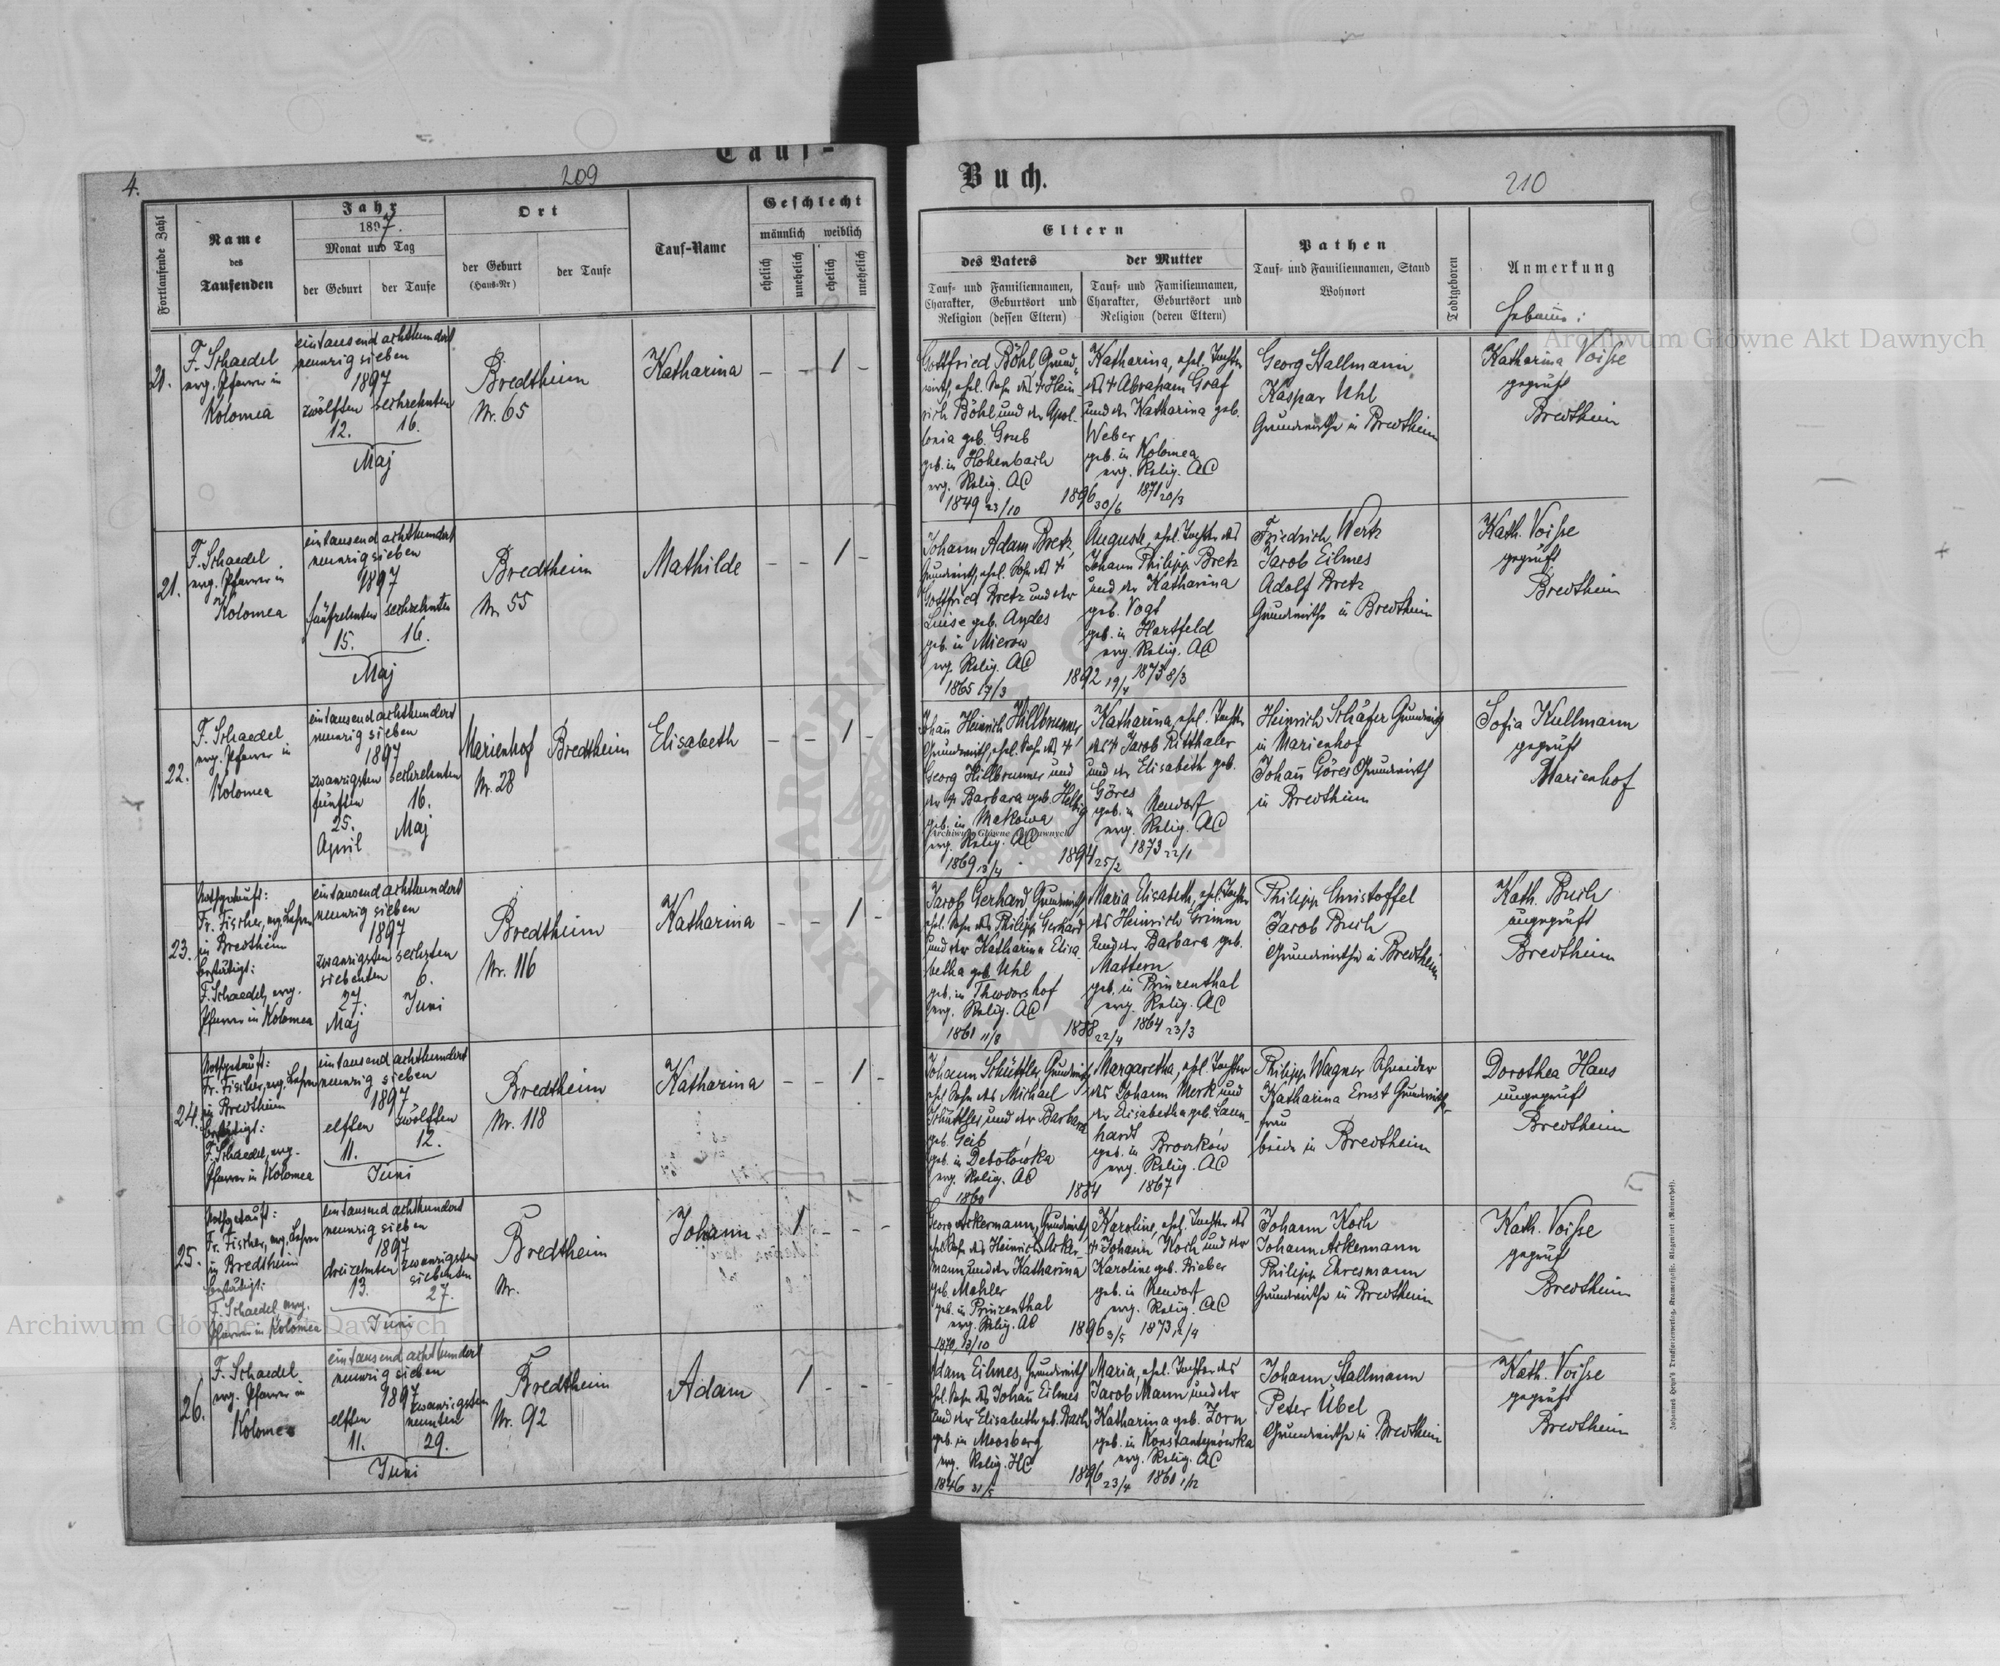 Tauf-
4.
209
Fortlaufende Zahl
Name
des
Taufenden
Jahr
1897.
Monat und Tag
der Geburt
der Taufe
Ort
der Geburt
(Haus-Nr)
der Taufe
Tauf-Name
Geschlecht
männlich
weiblich
ehelich
unehelich
ehelich
unehelich
F. Schaedel
evg. Pfarrer in
Kolomea
eintausend achthundert
neunzig sieben
1897
zwölften sechzehnten
12. 16.
Maj
Bredtheim
Nr. 65
Katharina
- - 1 -
21.
F. Schaedel
evg. Pfarrer in
Kolomea
eintausend achthundert
neunzig sieben
1897
fünfzehnten sechzehnten
15. 16.
Maj
Bredtheim
Nr. 55
Mathilde
- - 1 -
22.
F. Schaedel
evg. Pfarrer in
Kolomea
eintausend achthundert
neunzig sieben
1897
zwanzigsten sechzehnten
fünften 16.
25. Maj
April
Marienhof
Nr. 28
Bredtheim
Elisabeth
- - 1 -
23.
Nothgetauft:
Fr. Fischer, evg. Lehrer
in Bredtheim
bestätigt:
F. Schaedel, evg.
Pfarrer in Kolomea
eintausend achthundert
neunzig sieben
1897
zwanzigsten sechsten
siebenten 6.
27. Juni
Maj
Bredtheim
Nr. 116
Katharina
- - 1 -
24.
Nothgetauft:
Fr. Fischer, evg. Lehrer
in Bredtheim
bestätigt:
F. Schaedel, evg.
Pfarrer in Kolomea
eintausend achthundert
neunzig sieben
1897
elften zwölften
11. 12.
Juni
Bredtheim
Nr. 118
Katharina
- - 1 -
25.
Nothgetauft:
Fr. Fischer, evg. Lehrer
in Bredtheim
bestätigt:
F. Schaedel evg.
Pfarrer in Kolomea
eintausend achthundert
neunzig sieben
1897
dreizehnten zwanzigsten
siebenten
13. 27.
Juni
Bredtheim
Nr.
Johann
1 - - -
26.
F. Schaedel
evg. Pfarrer in
Kolomea
eintausend achthundert
neunzig sieben
1897
elften zwanzigsten
neunten
11. 29.
Juni
Bredtheim
Nr. 92
Adam
1 - - -
Buch.
210
Eltern
des Vaters
Tauf- und Familiennamen,
Charakter, Geburtsort und
Religion (dessen Eltern)
der Mutter
Tauf- und Familiennamen,
Charakter, Geburtsort und
Religion (deren Eltern)
Pathen
Tauf- und Familiennamen, Stand
Wohnort
Todtgeboren
Anmerkung
Gottfried Böhl Grund-
wirth, ehel. Sohn des † Hein
rich Böhl und der Apol-
lonia geb. Grub
geb. in Hohenbach
evg. Relig. AC
1849 23/10
1896 30/6
Katharina, ehel. Tochter
des † Abraham Graf
und der Katharina geb.
Weber
geb. in Kolomea
evg. Relig. AC
1871 20/3
Georg Stallmann
Kaspar Uhl
Grundwirthe in Bredtheim
Katharina Voisse
geprüft
Bredtheim
Johann Adam Bretz,
Grundwirth, ehel. Sohn des †
Gottfried Bretz und der
Luise geb. Andes
geb. in Mierow
evg. Relig. AC
1865 17/3
1892 19/4
Auguste, ehel. Tochter des
Johann Philipp Bretz
und der Katharina
geb. Vogt
geb. in Hartfeld
evg. Relig. AC
1873 8/3
Friedrich Wertz
Jacob Eilmes
Adolf Bretz
Grundwirthe in Bredtheim
Kath. Voisse
geprüft
Bredtheim
Johan Heinrich Hillbrunner,
Grundwirth, ehel. Sohn des †
Georg Hillbrunner und
der † Barbara geb. Helbig
geb. in Makowa
evg. Relig. AC
1869 13/4
1894 25/2
Katharina, ehel. Tochter
des † Jacob Ritthaler
und der Elisabeth geb.
Göres
geb. in Neudorf
evg. Relig. AC
1873 22/1
Heinrich Schäfer Grundwirth
in Marienhof
Johan Göres Grundwirth
in Bredtheim
Sofia Kullmann
geprüft
Marienhof
Jacob Gerhard Grundwirth
ehel. Sohn des Philipp Gerhard
und der Katharina Elisa
betha geb. Uhl
geb. in Theodorshof
evg. Relig. AC
1861 11/8
1888 22/4
Maria Elisabeth, ehel. Tochter
des Heinrich Grimm
und der Barbara geb.
Mattern
geb. in Prinzenthal
evg. Relig. AC
1864 23/3
Philipp Christoffel
Jacob Buch
Grundwirthe in Bredtheim
Kath. Buch
ungeprüft
Bredtheim
Johann Schüttler Grundwirth
ehel. Sohn des Michael
Schüttler und der Barbara
geb. Geib
geb. in Debolówka
evg. Relig. AC
1860
1884
Margaretha, ehel. Tochter
des Johann Merk und
der Elisabetha geb. Laun-
hardt
geb. in Broczków
evg. Relig. AC
1867
Philipp Wagner Schneider
Katharina Ernst Grundwirths-
frau
beide in Bredtheim
Dorothea Haus
ungeprüft
Bredtheim
Georg Ackermann, Grundwirth
ehel. Sohn des Heinrich Acker-
mann und der Katharina
geb. Mahler
geb. in Prinzenthal
evg. Relig. AC
1870 13/10
1896 3/5
Karoline, ehel. Tochter des
† Johann Koch und der
Karoline geb. Bieber
geb. in Neudorf
evg. Relig. AC
1873 12/9
Johann Koch
Johann Ackermann
Philipp Ehresmann
Grundwirthe in Bredtheim
Kath. Voisse
geprüft
Bredtheim
Adam Eilmes, Grundwirth
ehel. Sohn des Johan Eilmes
und der Elisabeth geb. Bach
geb. in Moosberg
evg. Relig. HC
1846 31/5
1896 23/4
Maria, ehel. Tochter des
Jacob Mann und der
Katharina geb. Zorn
geb. in Konstantynówka
evg. Relig. AC
1860 1/12
Johann Stallmann
Peter Übel
Grundwirthe in Bredtheim
Kath. Voisse
geprüft
Bredtheim
Archiwum Główne Akt Dawnych
Archiwum Główne Akt Dawnych